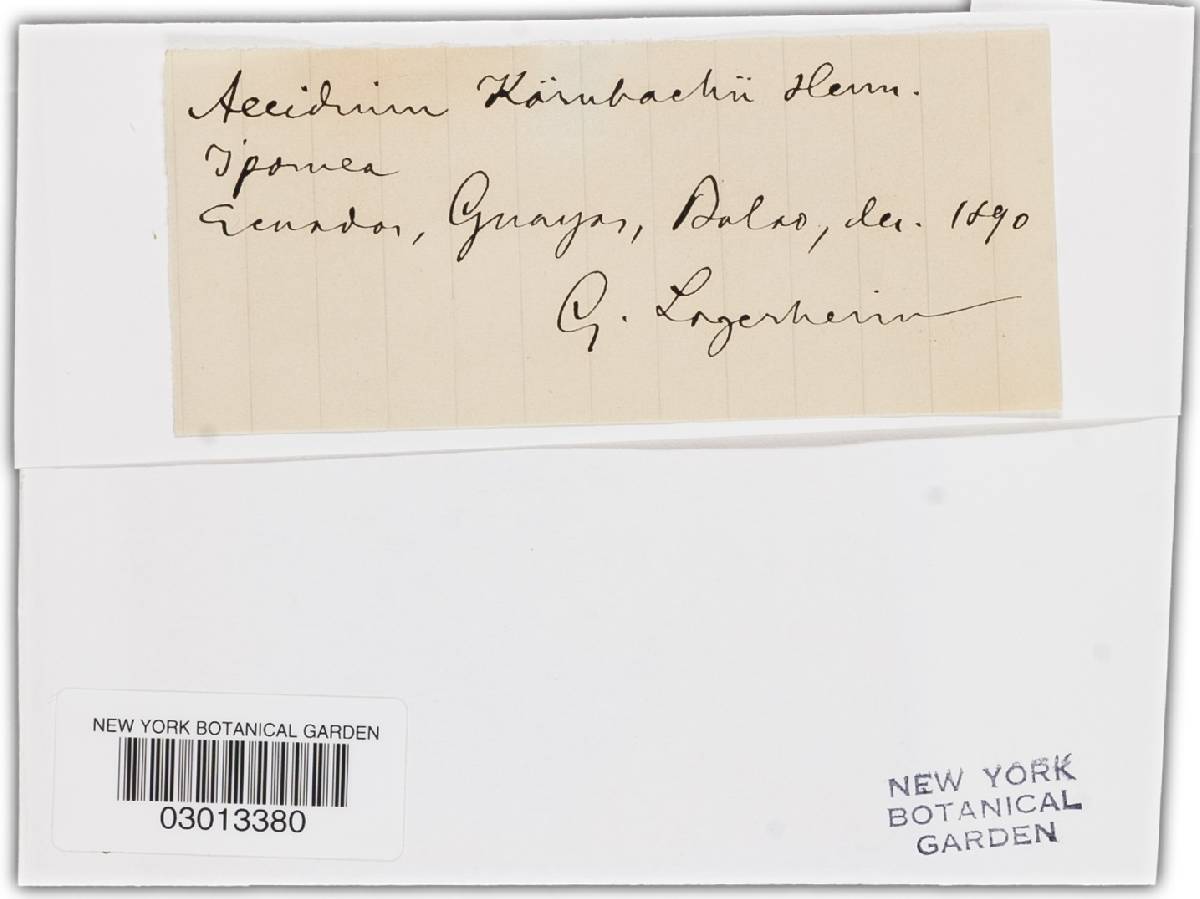 Aecidium Kärnbachii Henn.
Ipomea
Ecuador, Guayas, Balao, dec. 1890
G. Lagerheim
NEW YORK BOTANICAL GARDEN
03013380
NEW YORK
BOTANICAL
GARDEN